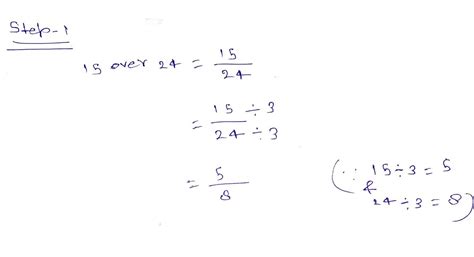 Step-1
15 over 24 = 15/24
= 15 ÷ 3 / 24 ÷ 3
= 5/8
(∵ 15 ÷ 3 = 5
&
24 ÷ 3 = 8)